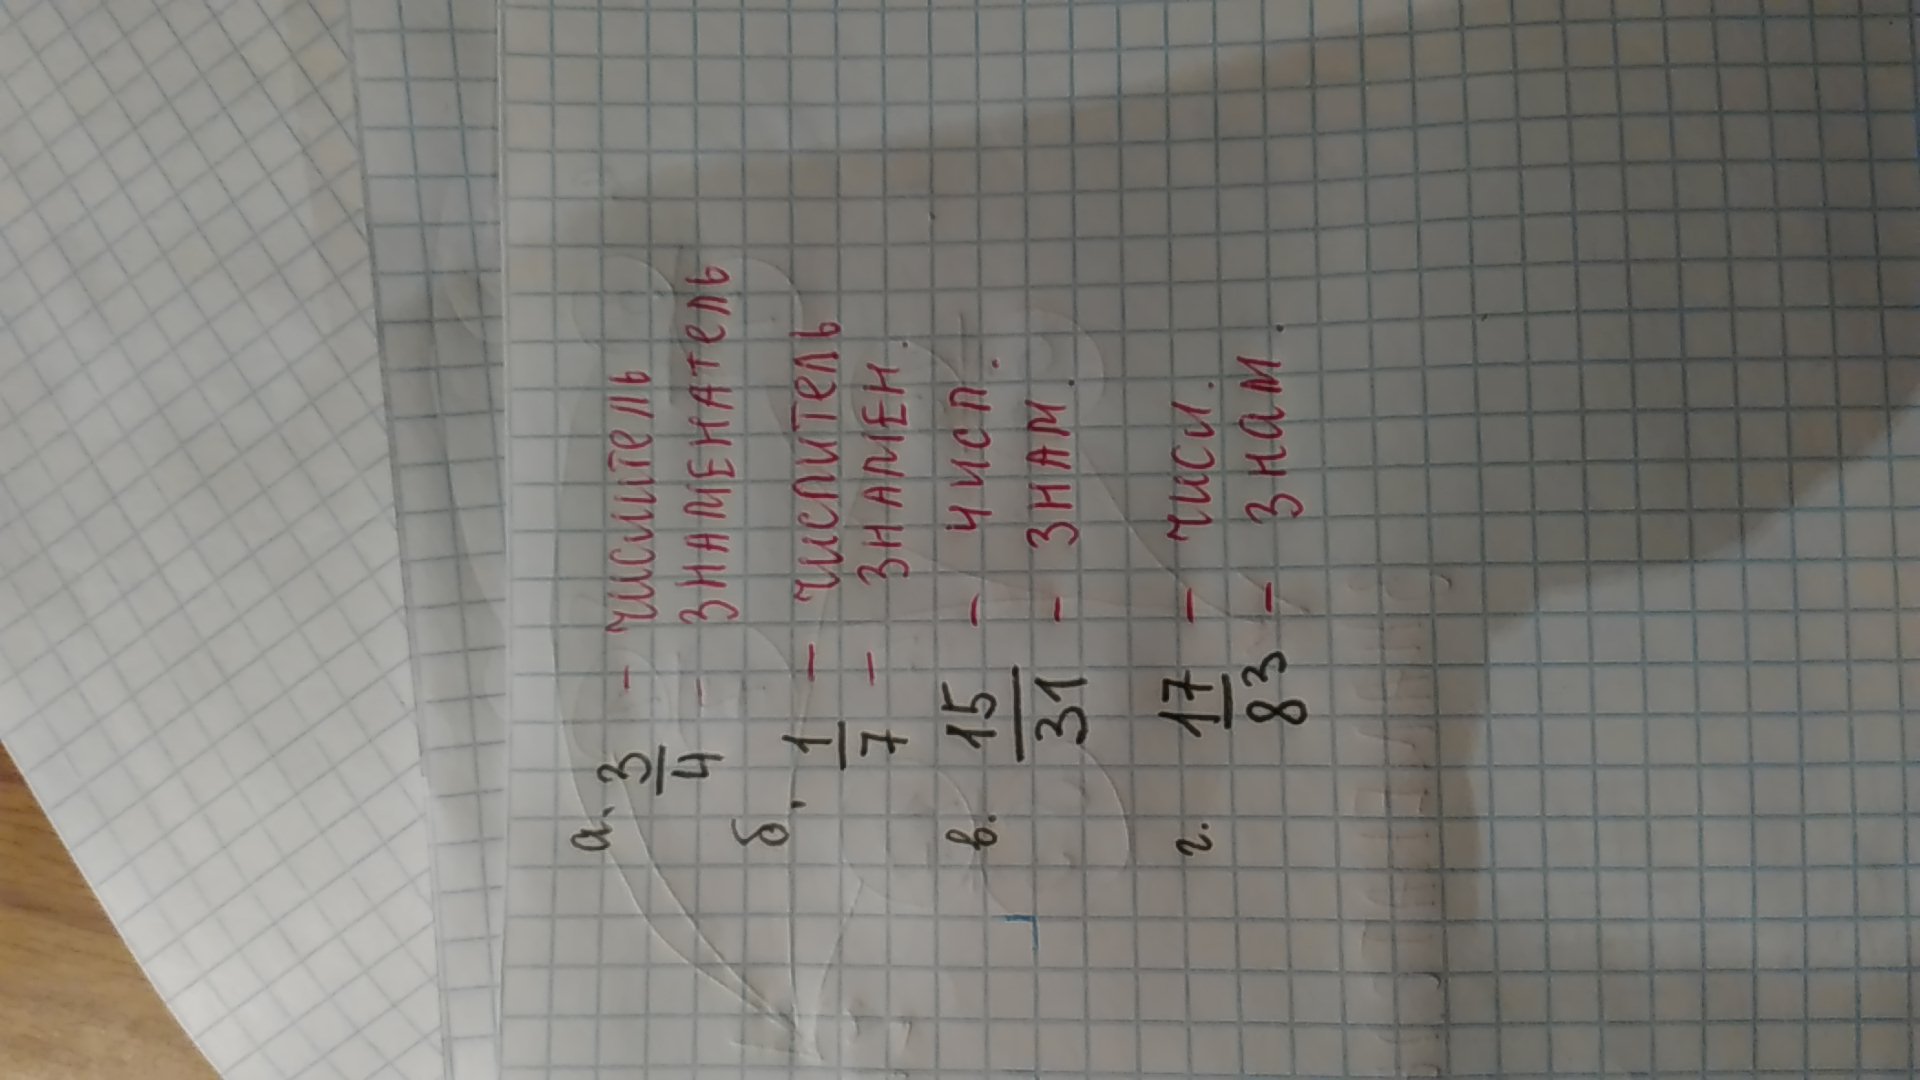 а. 3 - числитель
4 - знаменатель
б. 1 - числитель
7 - знамен.
в. 15 - числ.
31 - знам.
г. 17 - числ.
83 - знам.